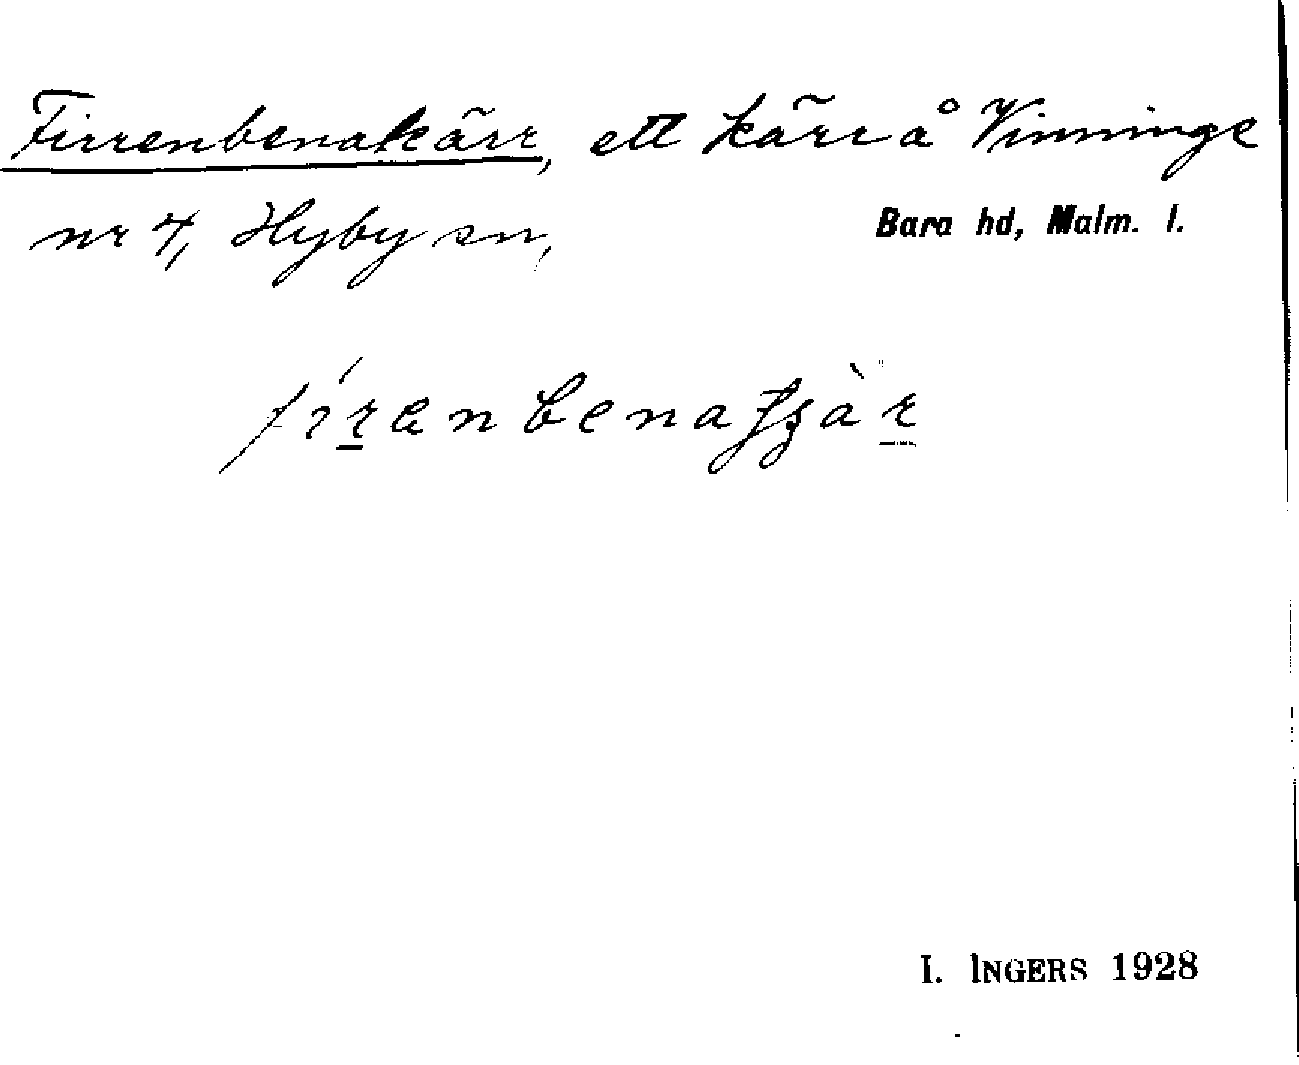 Firrenbenakärr, ett kärr å Vinninge
nr 4, Hyby sn,
Bara hd, Malm. l.
I. INGERS 1928